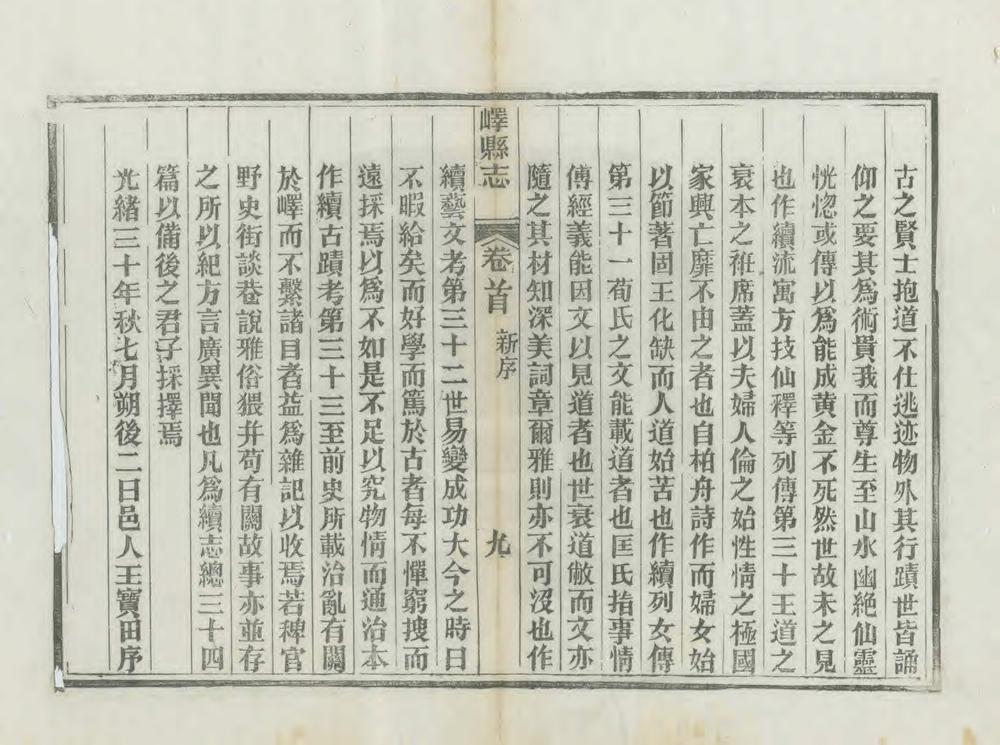 古之賢士抱道不仕逃迹物外其行蹟世皆誦
仰之要其為術貴我而尊生至山水幽絶仙靈
恍惚或傳以為能成黄金不死然世故未之見
也作續流寓方技仙釋等列傳第三十王道之
衰本之袵席蓋以夫婦人倫之始性情之極國
家興亡靡不由之者也自柏舟詩作而婦女始
以節著固王化缺而人道始苦也作續列女傳
第三十一荀氏之文能載道者也匡氏指事情
傅經義能因文以見道者也世衰道敝而文亦
隨之其材知深美詞章爾雅則亦不可沒也作
嶧縣志
卷首
新序
九
續藝文考第三十二世易變成功大今之時日
不暇給矣而好學而篤於古者每不憚窮搜而
遠採焉以為不如是不足以究物情而通治本
作續古蹟考第三十三至前史所載治亂有關
於嶧而不繫諸目者益為雜記以收焉若稗官
野史街談巷說雅俗猥并苟有關故事亦並存
之所以紀方言廣異聞也凡為續志總三十四
篇以備後之君子採擇焉
光緒三十年秋七月朔後二日邑人王寶田序